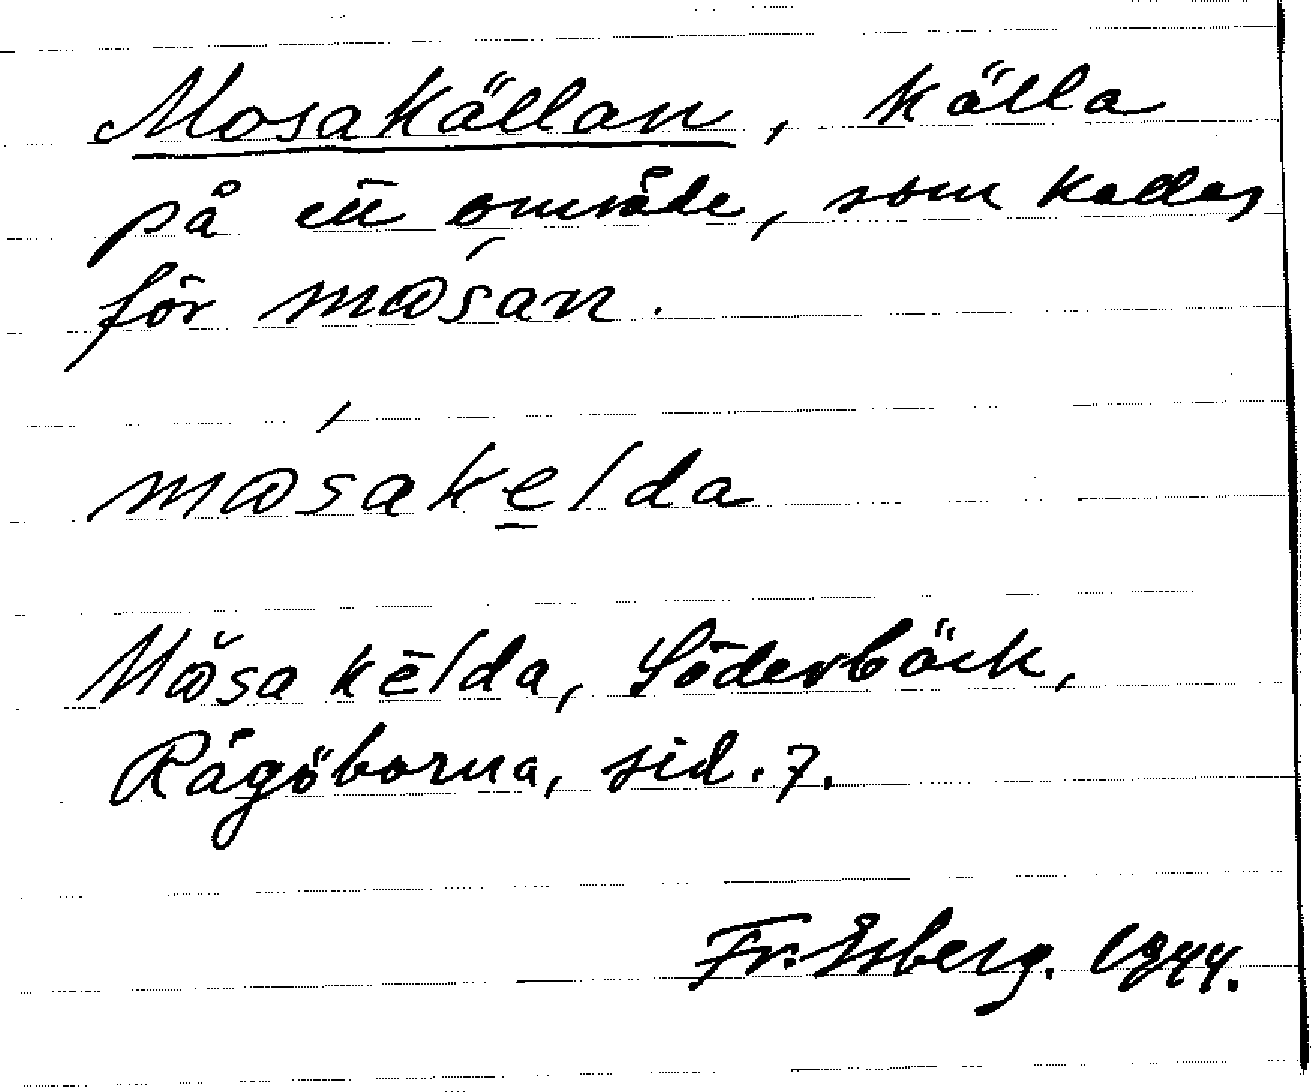 Mosakällan, källa
på ett område, som kallas
för mꞷ́san.
mꞷsákelda
Mꞷ̆sa kēlda, Söderbäck,
Rågöborna, sid. 7.
Fr. Esberg. 1944.